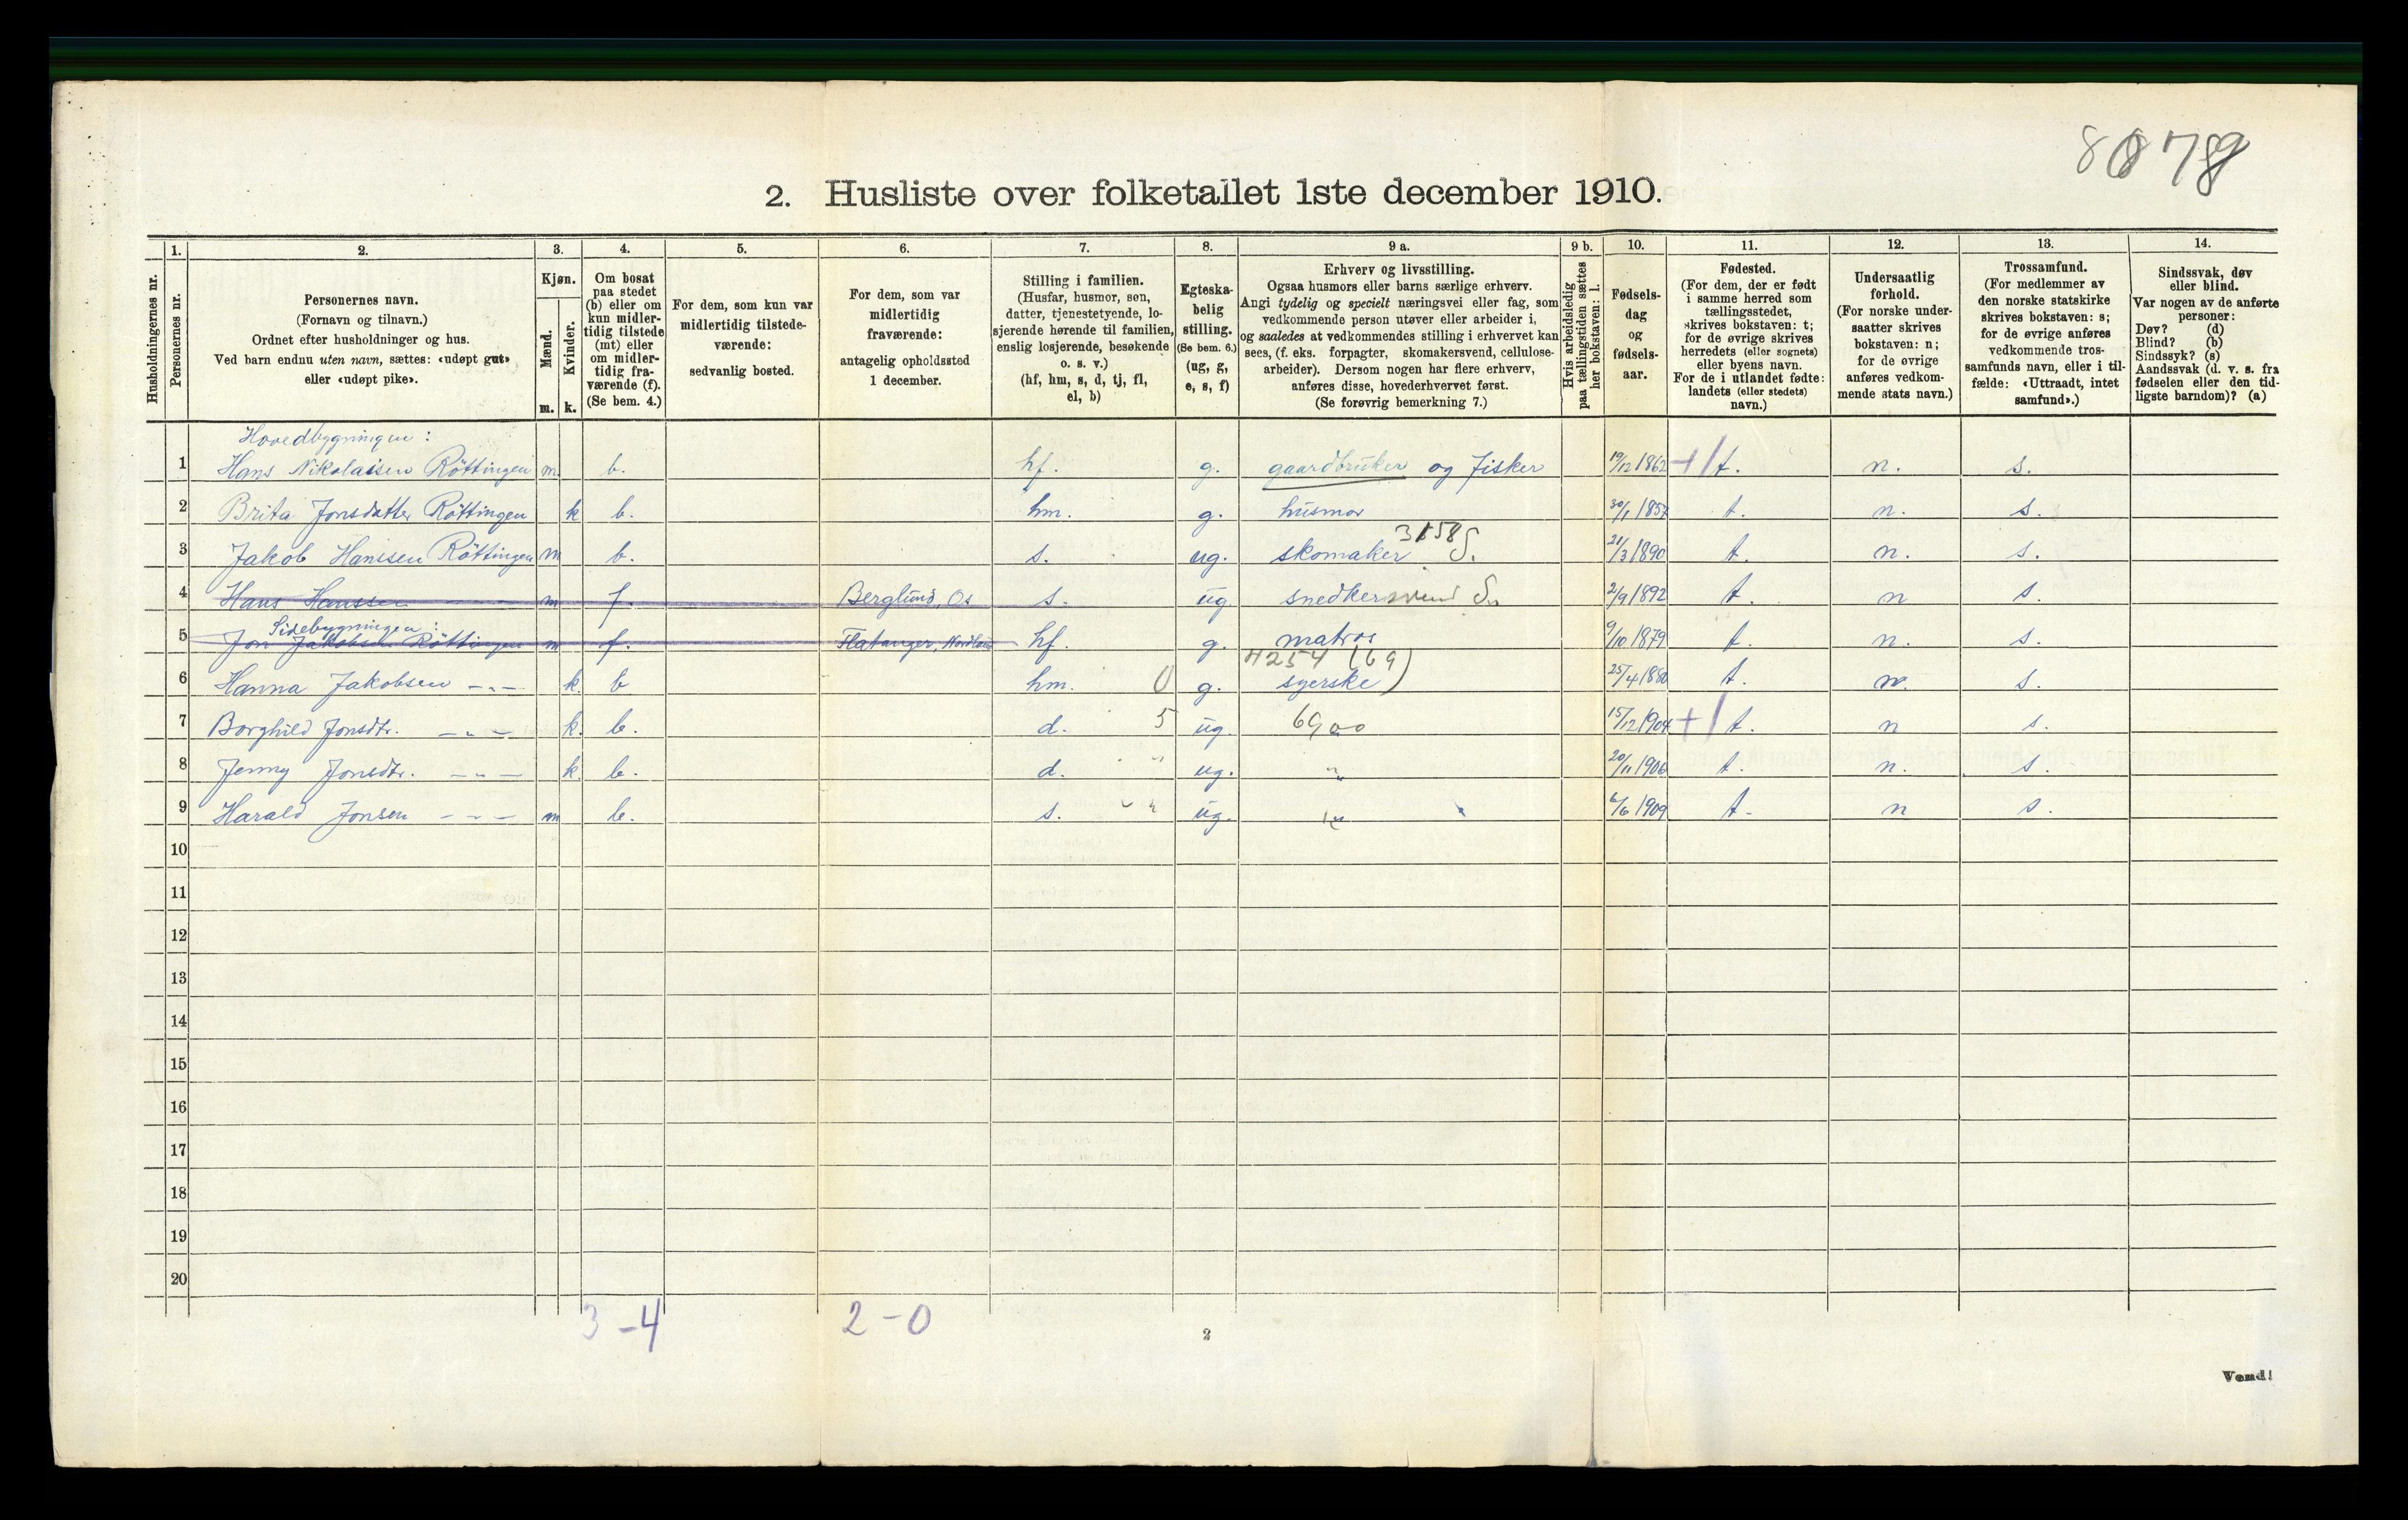 8 78
2. Husliste over folketallet 1ste december 1910.
Husholdningernes nr.
1.
Personernes nr.
2.
Personernes navn.
(Fornavn og tilnavn.)
Ordnet efter husholdninger og hus.
Ved barn endnu uten navn, sættes: «udøpt gut»
eller «udøpt pike».
3.
Kjøn.
Mænd.
m.
Kvinder.
k.
4.
Om bosat
paa stedet
(b) eller om
kun midler-
tidig tilstede
(mt) eller
om midler-
tidig fra-
værende (f).
(Se bem. 4.)
5.
For dem, som kun var
midlertidig tilstede-
værende:
sedvanlig bosted.
6.
For dem, som var
midlertidig
fraværende:
antagelig opholdssted
1 december.
7.
Stilling i familien.
(Husfar, husmor, søn,
datter, tjenestetyende, lo-
sjerende hørende til familien,
enslig losjerende, besøkende
o. s. v.)
(hf, hm, s, d, tj, fl,
el, b)
8.
Egteska-
belig
stilling.
(Se bem. 6.)
(ug, g,
e, s, f)
9 a.
Erhverv og livsstilling.
Ogsaa husmors eller barns særlige erhverv.
Angi tydelig og specielt næringsvei eller fag, som
vedkommende person utøver eller arbeider i,
og saaledes at vedkommendes stilling i erhvervet kan
sees, (f. eks. forpagter, skomakersvend, cellulose-
arbeider). Dersom nogen har flere erhverv,
anføres disse, hovederhvervet først.
(Se forøvrig bemerkning 7.)
9 b.
Hvis arbeidsledig
paa tællingstiden sættes
her bokstaven: l.
10.
Fødsels-
dag
og
fødsels-
aar.
11.
Fødested.
(For dem, der er født
i samme herred som
tællingsstedet,
skrives bokstaven: t;
for de øvrige skrives
herredets (eller sognets)
eller byens navn.
For de i utlandet fødte:
landets (eller stedets)
navn.)
12.
Undersaatlig
forhold.
(For norske under-
saatter skrives
bokstaven: n;
for de øvrige
anføres vedkom-
mende stats navn.)
13.
Trossamfund.
(For medlemmer av
den norske statskirke
skrives bokstaven: s;
for de øvrige anføres
vedkommende tros-
samfunds navn, eller i til-
fælde: «Uttraadt, intet
samfund».)
14.
Sindssvak, døv
eller blind.
Var nogen av de anførte
personer:
Døv? (d)
Blind? (b)
Sindssyk? (s)
Aandssvak (d. v. s. fra
fødselen eller den tid-
ligste barndom)? (a)
Hovedbygningen:
1 Hans Nikolaisen Röttingen m. b. hf. g. gaardbruker og fisker 19/12 1862 + t. n. s.
2 Brita Jonsdatter Röttingen k b. hm. g. husmor 30/1 1857 t. n. s.
3158
3 Jakob Hanssen Röttingen m b. s. ug. skomaker S. 21/3 1890 t. n. s.
4 Hans Hanssen m f. Berglund, Os s. ug. snedkersvend S. 2/9 1892 t. n s.
Sidebygningen:
5 Jon Jakobsen Röttingen m f. Flatanger, Nordland hf. g. matros 9/10 1879 t. n. s.
4254 (69)
6 Hanna Jakobsen -"- k. b hm. 0 g. syerske 25/4 1880 t. n. s.
7 Borghild Jonsdtr. -"- k. b. d. 5 ug. 6900 15/12 1904 + t. n s.
8 Jenny Jonsdtr. -"- k b. d. " ug. " 20/11 1906 t. n. s.
9 Harald Jonsen -"- m b. s. " ug. " 6/6 1909 t. n s.
10
11
12
13
14
15
16
17
18
19
20
3-4 2-0
2
Vend!